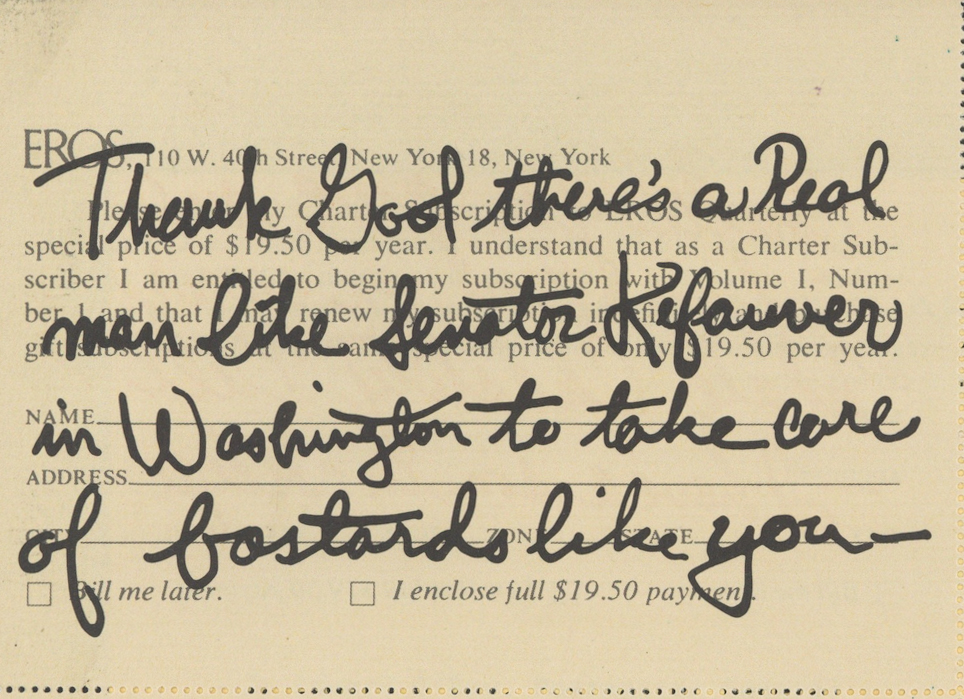 EROS, 110 W. 40th Street, New York 18, New York
Please enter my Charter Subscription to EROS Quarterly at the
special price of $19.50 per year. I understand that as a Charter Sub-
scriber I am entitled to begin my subscription with Volume I, Num-
ber 1 and that I may renew my subscription indefinitely and purchase
gift subscriptions at the same special price of only $19.50 per year.
NAME
ADDRESS
CITY ZONE STATE
Bill me later. I enclose full $19.50 payment.
Thank God there's a Real
man like Senator Kefauver
in Washington to take care
of bastards like you—